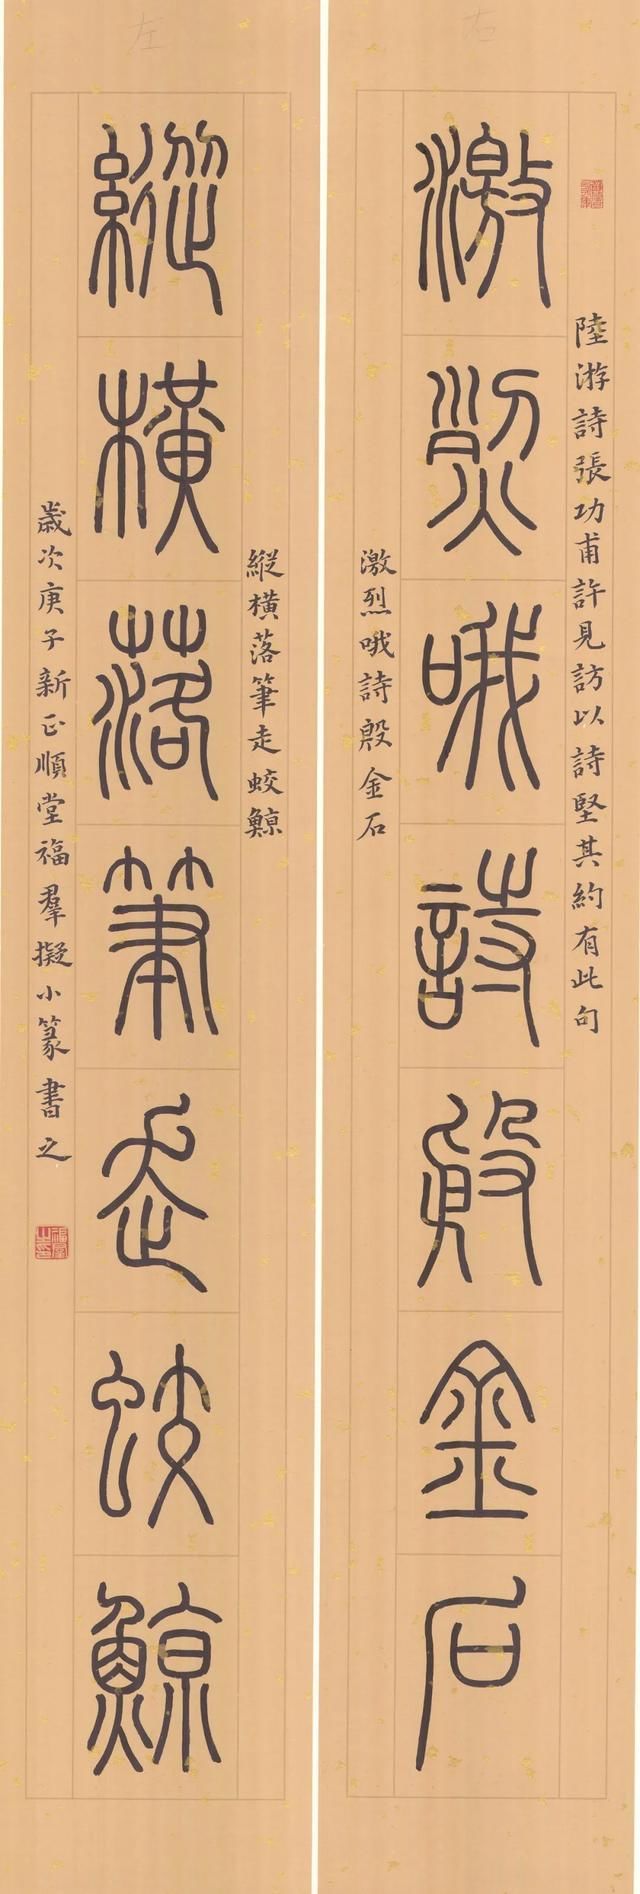 右
陸游詩張功甫許見訪以詩堅其約有此句
激烈哦詩殷金石
激烈哦詩殷金石
左
縱橫落筆走蛟鯨
縱橫落筆走蛟鯨
歲次庚子新正順堂福羣擬小篆書之